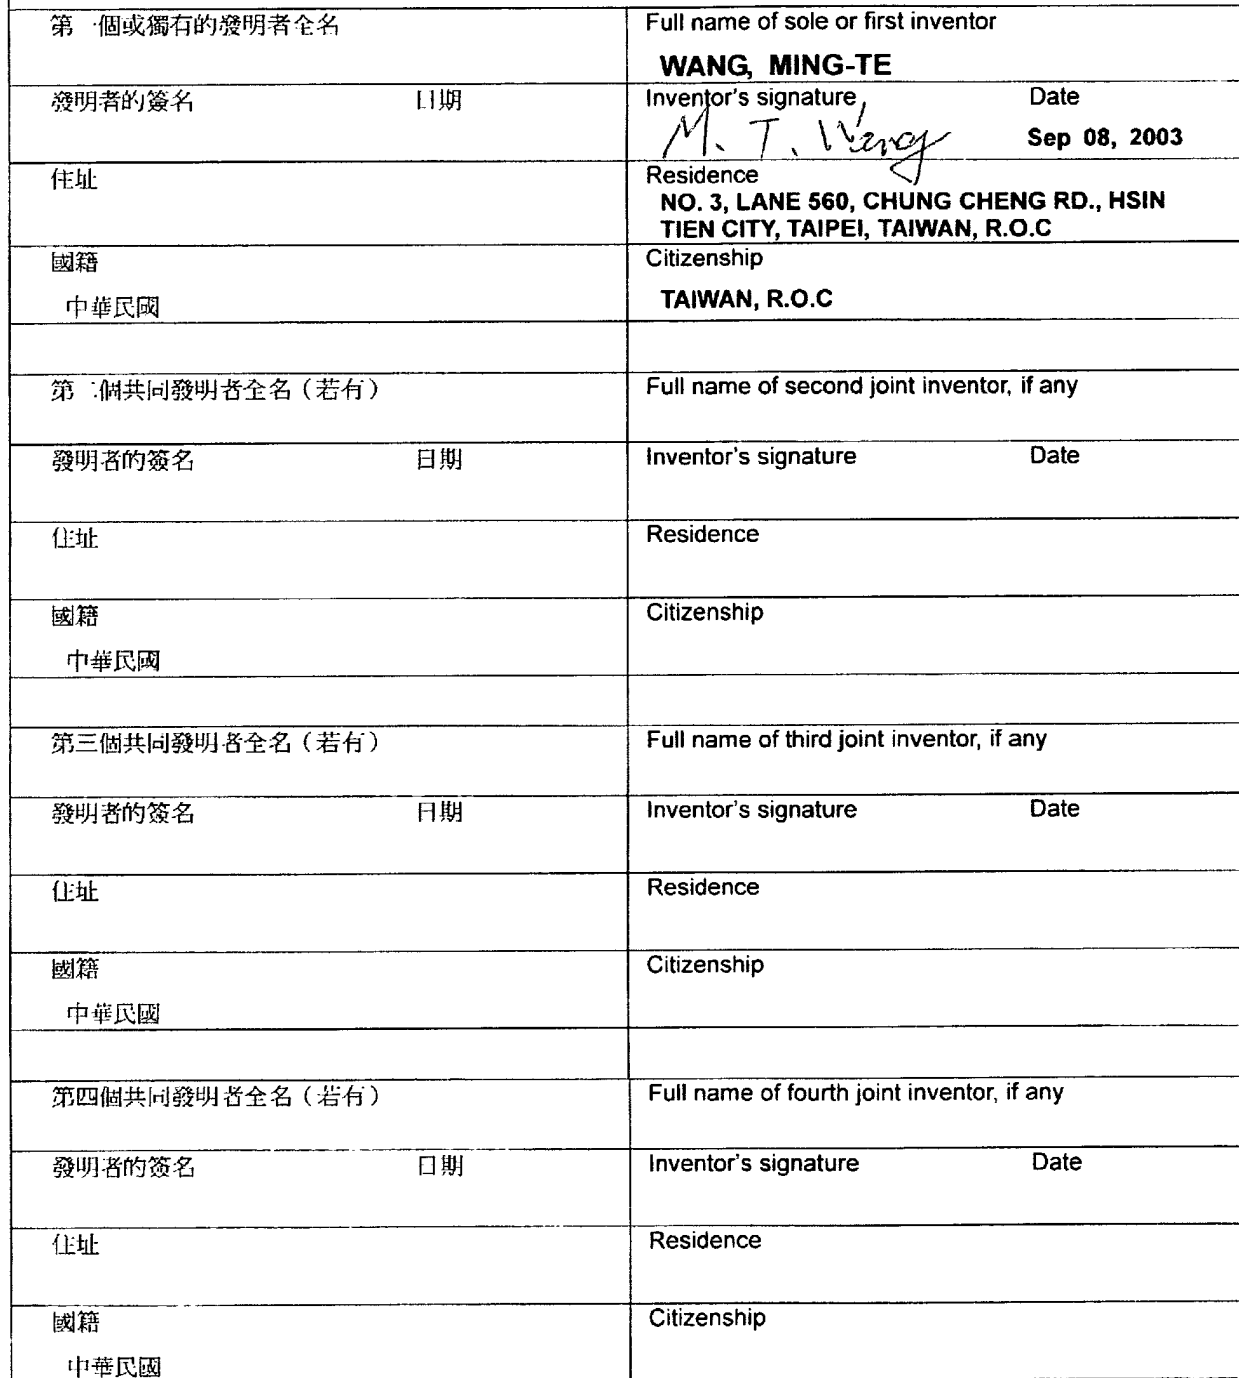 第一個或獨有的發明者全名
Full name of sole or first inventor
WANG, MING-TE
發明者的簽名 日期
Inventor's signature, Date
M. T. Wang
Sep 08, 2003
住址
Residence
NO. 3, LANE 560, CHUNG CHENG RD., HSIN
TIEN CITY, TAIPEI, TAIWAN, R.O.C
國籍
Citizenship
中華民國
TAIWAN, R.O.C
第二個共同發明者全名（若有）
Full name of second joint inventor, if any
發明者的簽名 日期
Inventor's signature Date
住址
Residence
國籍
Citizenship
中華民國
第三個共同發明者全名（若有）
Full name of third joint inventor, if any
發明者的簽名 日期
Inventor's signature Date
住址
Residence
國籍
Citizenship
中華民國
第四個共同發明者全名（若有）
Full name of fourth joint inventor, if any
發明者的簽名 日期
Inventor's signature Date
住址
Residence
國籍
Citizenship
中華民國